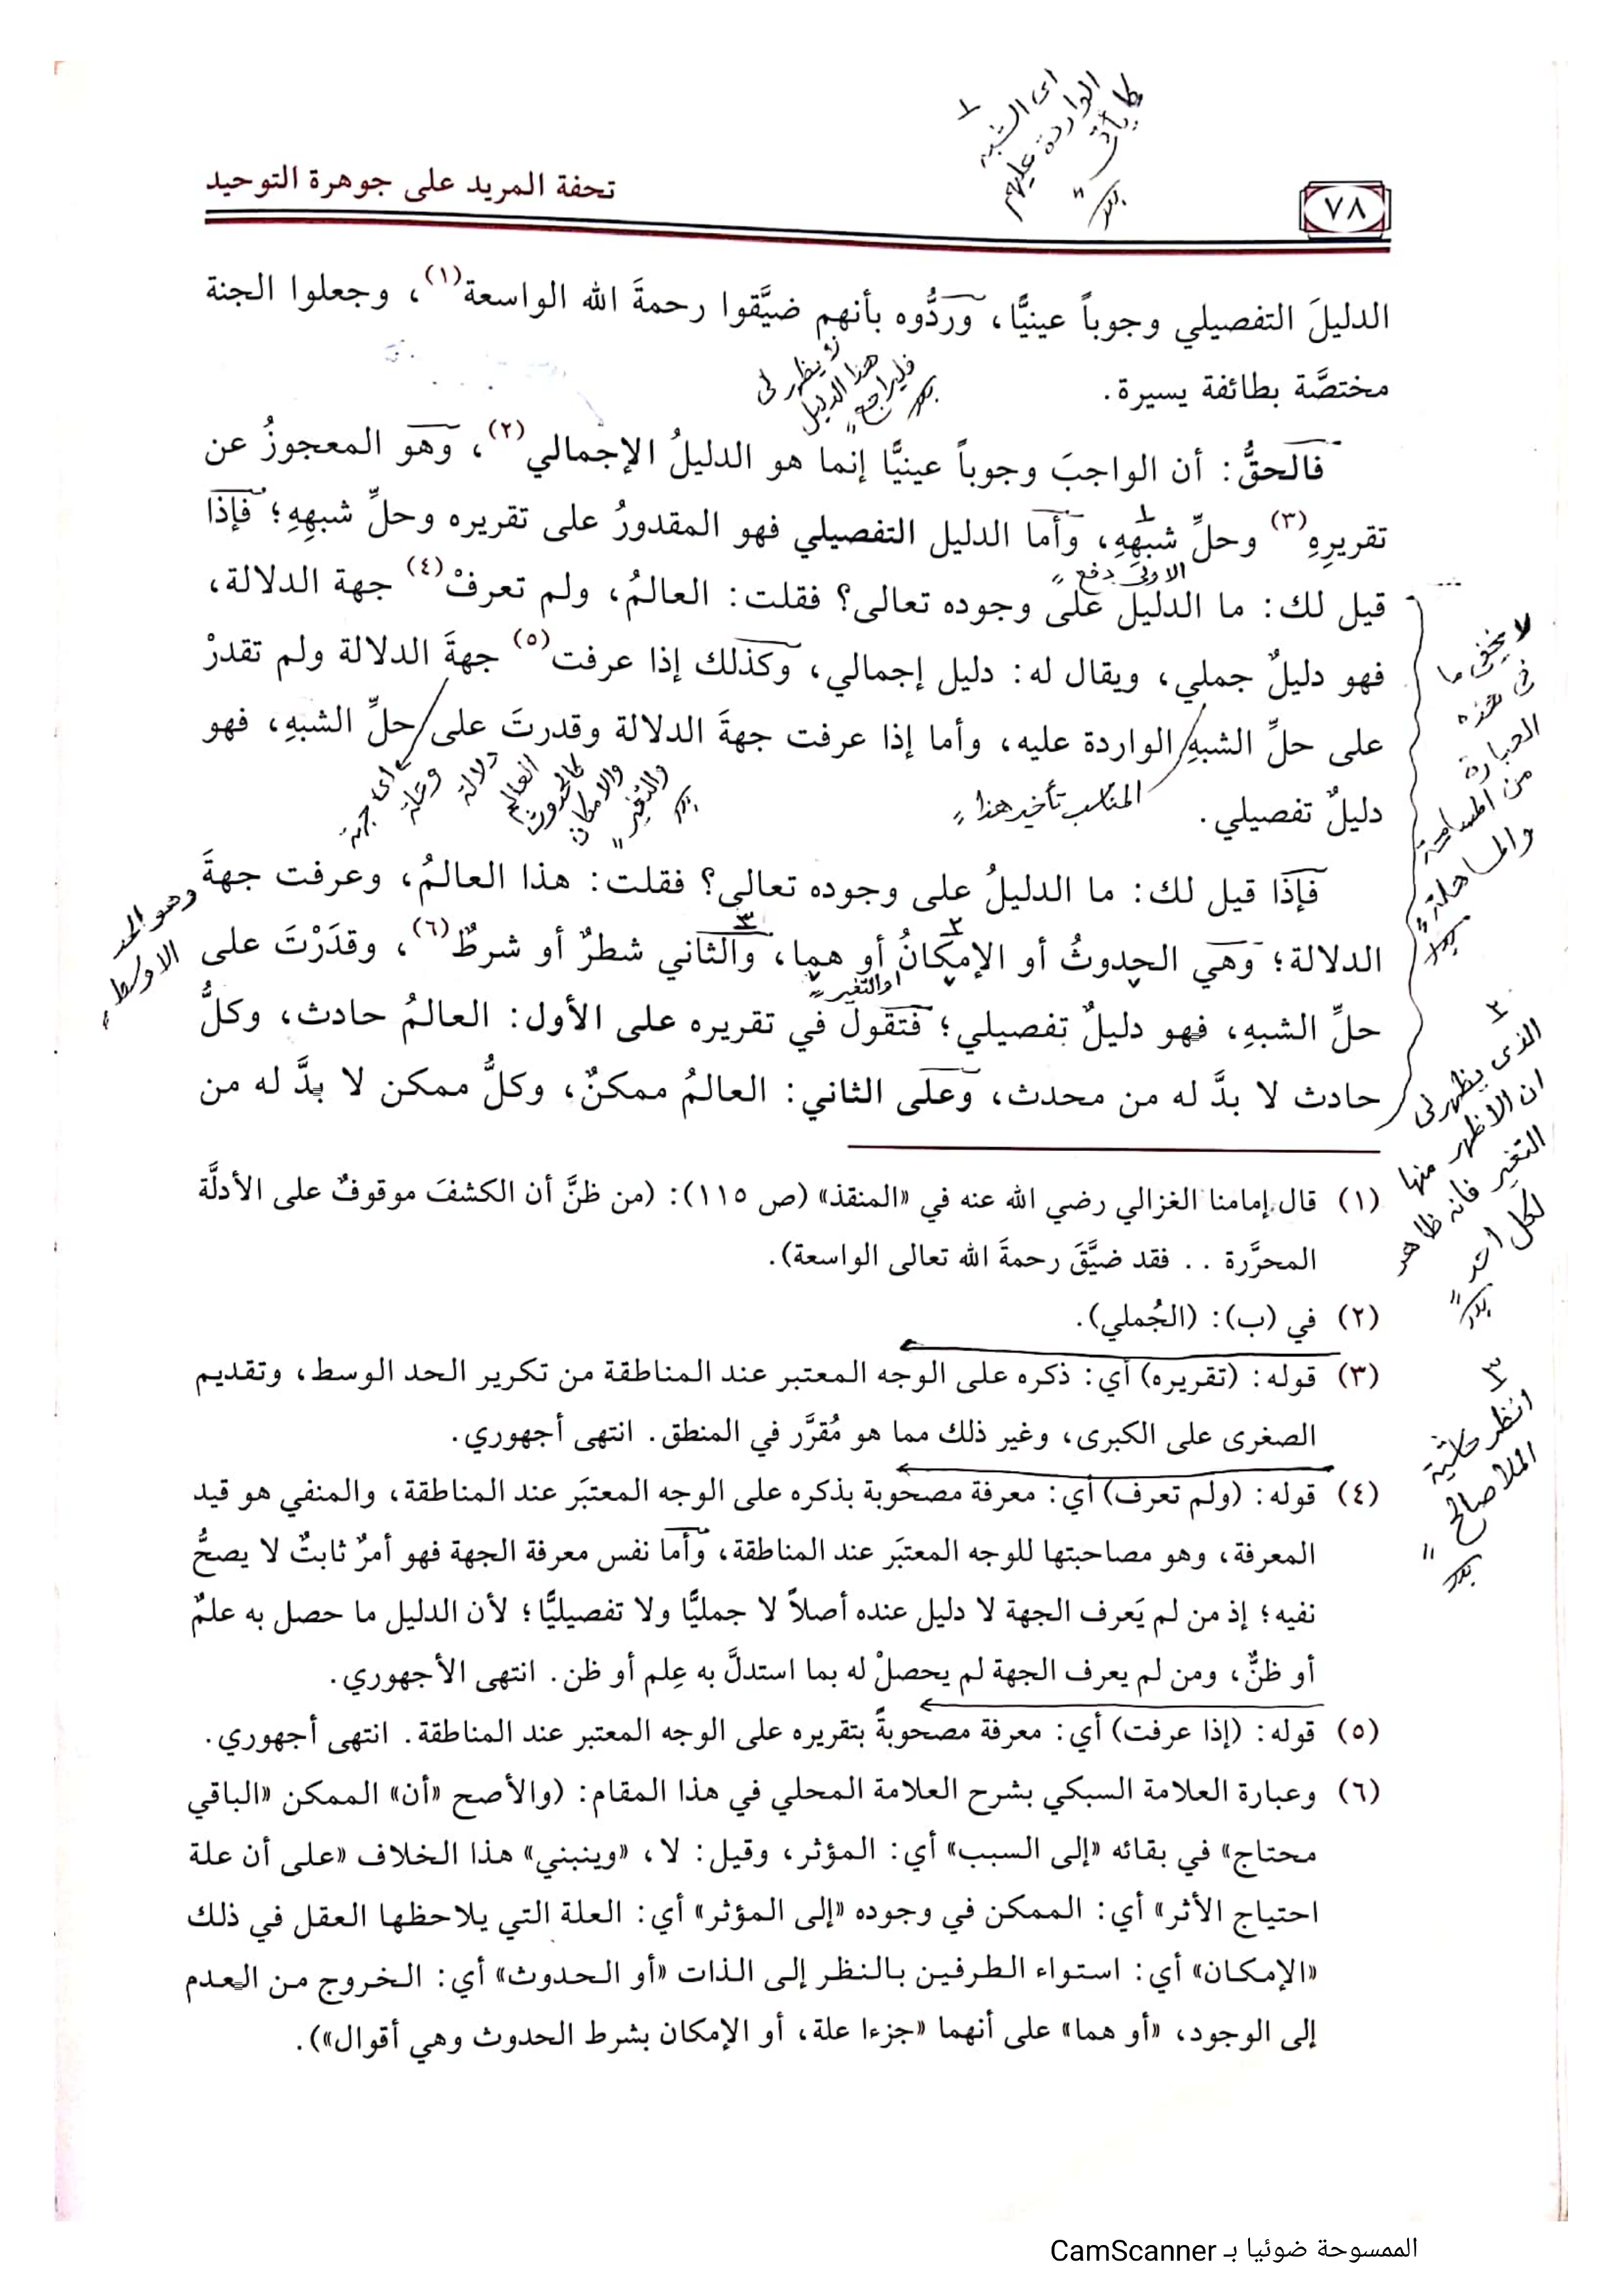 اى الشبه
الواردة عليهم
كما يأتى
تحفة المريد على جوهرة التوحيد
٧٨
الدليلَ التفصيلي وجوباً عينيًّا، وردُّوه بأنهم ضيَّقوا رحمةَ الله الواسعة(١)، وجعلوا الجنة
مختصَّة بطائفة يسيرة.
يظهر لى
هذا الدليل
فليراجع
فالحقُّ: أن الواجبَ وجوباً عينيًّا إنما هو الدليلُ الإجمالي(٢)، وهو المعجوزُ عن
تقريرِهِ(٣) وحلِّ شبهِهِ، وأما الدليل التفصيلي فهو المقدورُ على تقريره وحلِّ شبهِهِ؛ فإذا
الاولى دفع
قيل لك: ما الدليل على وجوده تعالى؟ فقلت: العالمُ، ولم تعرفْ(٤) جهة الدلالة،
فهو دليلٌ جملي، ويقال له: دليل إجمالي، وكذلك إذا عرفت(٥) جهةَ الدلالة ولم تقدرْ
على حلِّ الشبهِ الواردة عليه، وأما إذا عرفت جهةَ الدلالة وقدرتَ على حلِّ الشبهِ، فهو
دليلٌ تفصيلي.
المناسب تأخير هذا
اى جهة
وعلة
دلالة
العالم
كالحدوث
والامكان
والتغير
لا يخفى ما
فى هذه
العبارة
من المسامحة
والمساهلة
فإذا قيل لك: ما الدليلُ على وجوده تعالى؟ فقلت: هذا العالمُ، وعرفت جهةَ
وهو الحد
الاوسط
الدلالة؛ وهي الحدوثُ أو الإمكانُ أو هما، والثاني شطرٌ أو شرطٌ(٦)، وقدَرْتَ على
او التغير
حلِّ الشبهِ، فهو دليلٌ تفصيلي؛ فتقول في تقريره على الأول: العالمُ حادث، وكلُّ
حادث لا بدَّ له من محدث، وعلى الثاني: العالمُ ممكنٌ، وكلُّ ممكن لا بدَّ له من
٢
الذى يظهر لى
ان الاظهر منها
التغير فانه ظاهر
لكل احد
(١) قال إمامنا الغزالي رضي الله عنه في «المنقذ» (ص ١١٥): (من ظنَّ أن الكشفَ موقوفٌ على الأدلَّة
المحرَّرة .. فقد ضيَّقَ رحمةَ الله تعالى الواسعة).
(٢) في (ب): (الجُملي).
(٣) قوله: (تقريره) أي: ذكره على الوجه المعتبر عند المناطقة من تكرير الحد الوسط، وتقديم
الصغرى على الكبرى، وغير ذلك مما هو مُقرَّر في المنطق. انتهى أجهوري.
٣
انظر حاشية
الملا صالح
(٤) قوله: (ولم تعرف) أي: معرفة مصحوبة بذكره على الوجه المعتبَر عند المناطقة، والمنفي هو قيد
المعرفة، وهو مصاحبتها للوجه المعتبَر عند المناطقة، وأما نفس معرفة الجهة فهو أمرٌ ثابتٌ لا يصحُّ
نفيه؛ إذ من لم يَعرف الجهة لا دليل عنده أصلاً لا جمليًّا ولا تفصيليًّا؛ لأن الدليل ما حصل به علمٌ
أو ظنٌّ، ومن لم يعرف الجهة لم يحصلْ له بما استدلَّ به عِلم أو ظن. انتهى الأجهوري.
(٥) قوله: (إذا عرفت) أي: معرفة مصحوبةً بتقريره على الوجه المعتبر عند المناطقة. انتهى أجهوري.
(٦) وعبارة العلامة السبكي بشرح العلامة المحلي في هذا المقام: (والأصح «أن» الممكن «الباقي
محتاج» في بقائه «إلى السبب» أي: المؤثر، وقيل: لا، «وينبني» هذا الخلاف «على أن علة
احتياج الأثر» أي: الممكن في وجوده «إلى المؤثر» أي: العلة التي يلاحظها العقل في ذلك
«الإمكان» أي: استواء الطرفين بالنظر إلى الذات «أو الحدوث» أي: الخروج من العدم
إلى الوجود، «أو هما» على أنهما «جزءا علة، أو الإمكان بشرط الحدوث وهي أقوال»).
الممسوحة ضوئيا بـ CamScanner